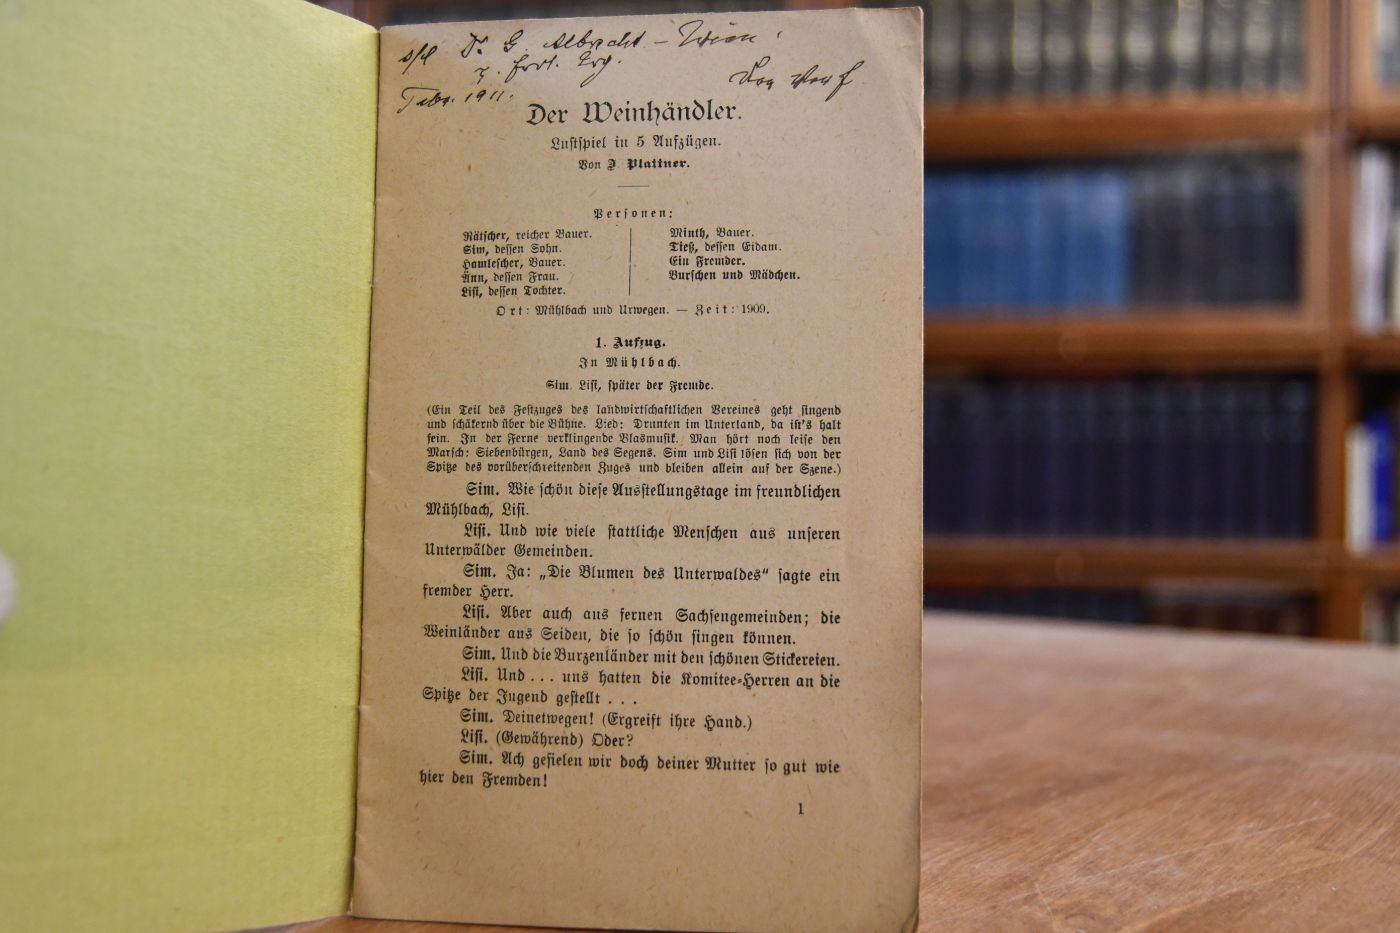 Dr. G. Albrecht – Wien
Febr. 1911.
Der Weinhändler.
Lustspiel in 5 Aufzügen.
Von J. Plattner.
Personen:
Rätscher, reicher Bauer.
Sim, dessen Sohn.
Hamlescher, Bauer.
Ann, dessen Frau.
Lisi, dessen Tochter.
Minth, Bauer.
Tieß, dessen Eidam.
Ein Fremder.
Burschen und Mädchen.
Ort: Mühlbach und Urwegen. — Zeit: 1909.
1. Aufzug.
In Mühlbach.
Sim. Lisi, später der Fremde.
(Ein Teil des Festzuges des landwirtschaftlichen Vereines geht singend
und schäkernd über die Bühne. Lied: Drunten im Unterland, da ist's halt
fein. In der Ferne verklingende Blasmusik. Man hört noch leise den
Marsch: Siebenbürgen, Land des Segens. Sim und Lisi lösen sich von der
Spitze des vorüberschreitenden Zuges und bleiben allein auf der Szene.)
Sim. Wie schön diese Ausstellungstage im freundlichen
Mühlbach, Lisi.
Lisi. Und wie viele stattliche Menschen aus unseren
Unterwälder Gemeinden.
Sim. Ja: „Die Blumen des Unterwaldes“ sagte ein
fremder Herr.
Lisi. Aber auch aus fernen Sachsengemeinden; die
Weinländer aus Seiden, die so schön singen können.
Sim. Und die Burzenländer mit den schönen Stickereien.
Lisi. Und . . . uns hatten die Komitee-Herren an die
Spitze der Jugend gestellt . . .
Sim. Deinetwegen! (Ergreift ihre Hand.)
Lisi. (Gewährend) Oder?
Sim. Ach gefielen wir doch deiner Mutter so gut wie
hier den Fremden!
1